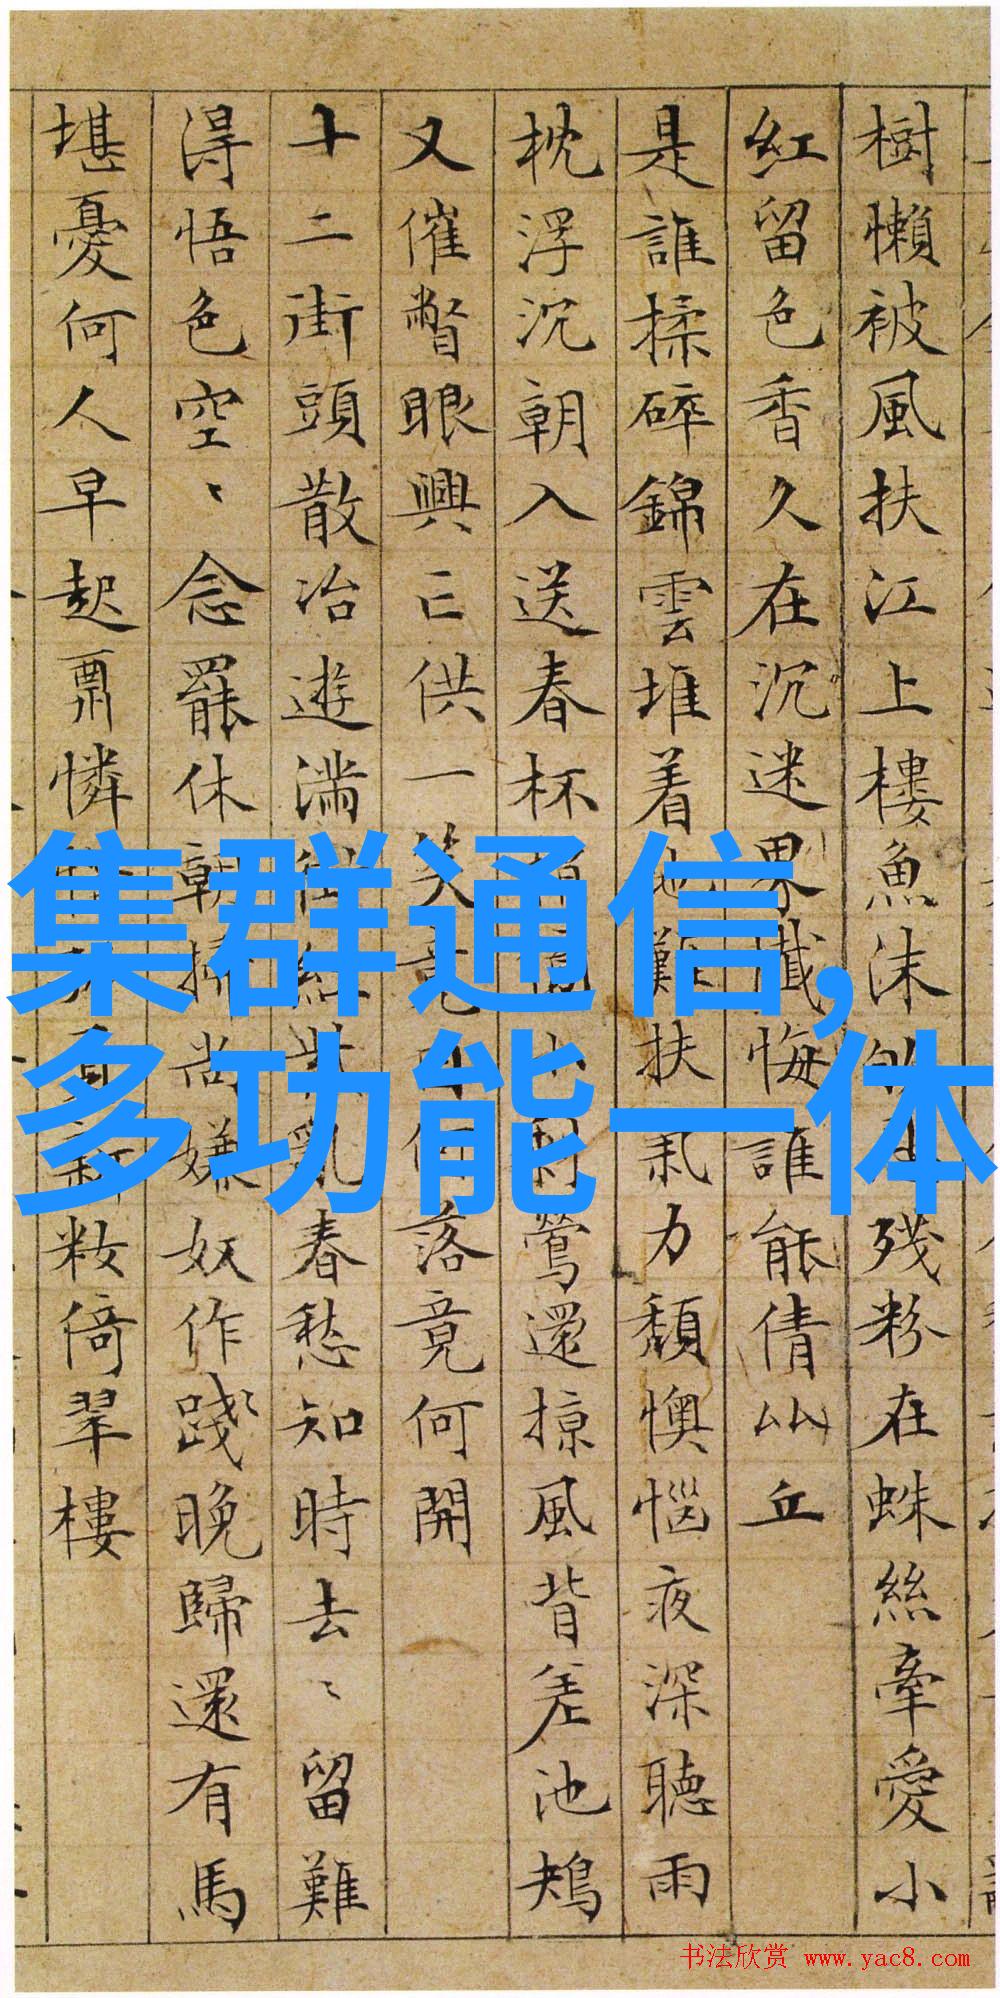 集群通信,
多功能一体
樹懶被風扶江上樓魚沫殘粉在蛛絲牽愛小
紅留色香久在沉迷界懺悔誰能倩比丘
是誰揉碎錦雲堆着地難扶氣力頹懊惱夜深聽雨
枕浮沉朝入送春杯鶯還掠風背差池鴂
又催瞥眼興亡供一笑竟落竟何開
十二街頭散冶遊滿春愁知時去〻留難
得悟色空〻念罷休朝掃尚嫌奴作踐晚歸還有馬
堪憂何人早起憐新妝倚翠樓
书法欣赏 www.yac8.com